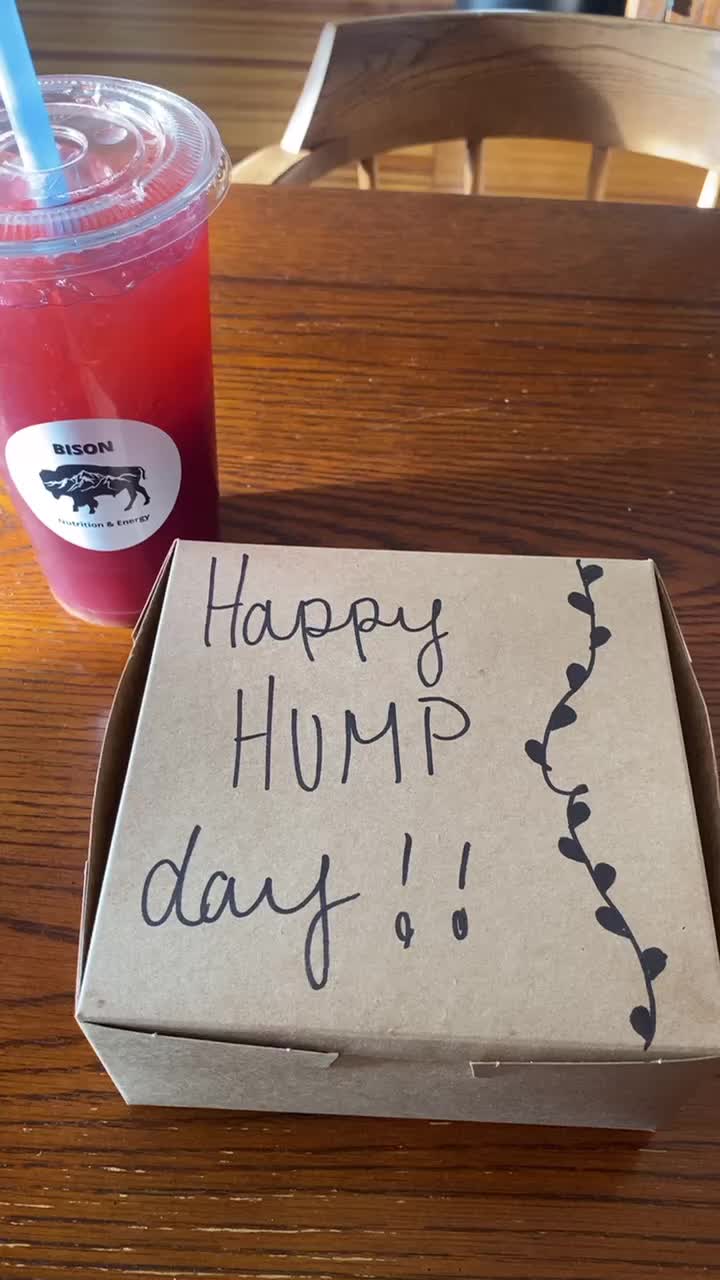 BISON
Nutrition & Energy
Happy
HUMP
day!!